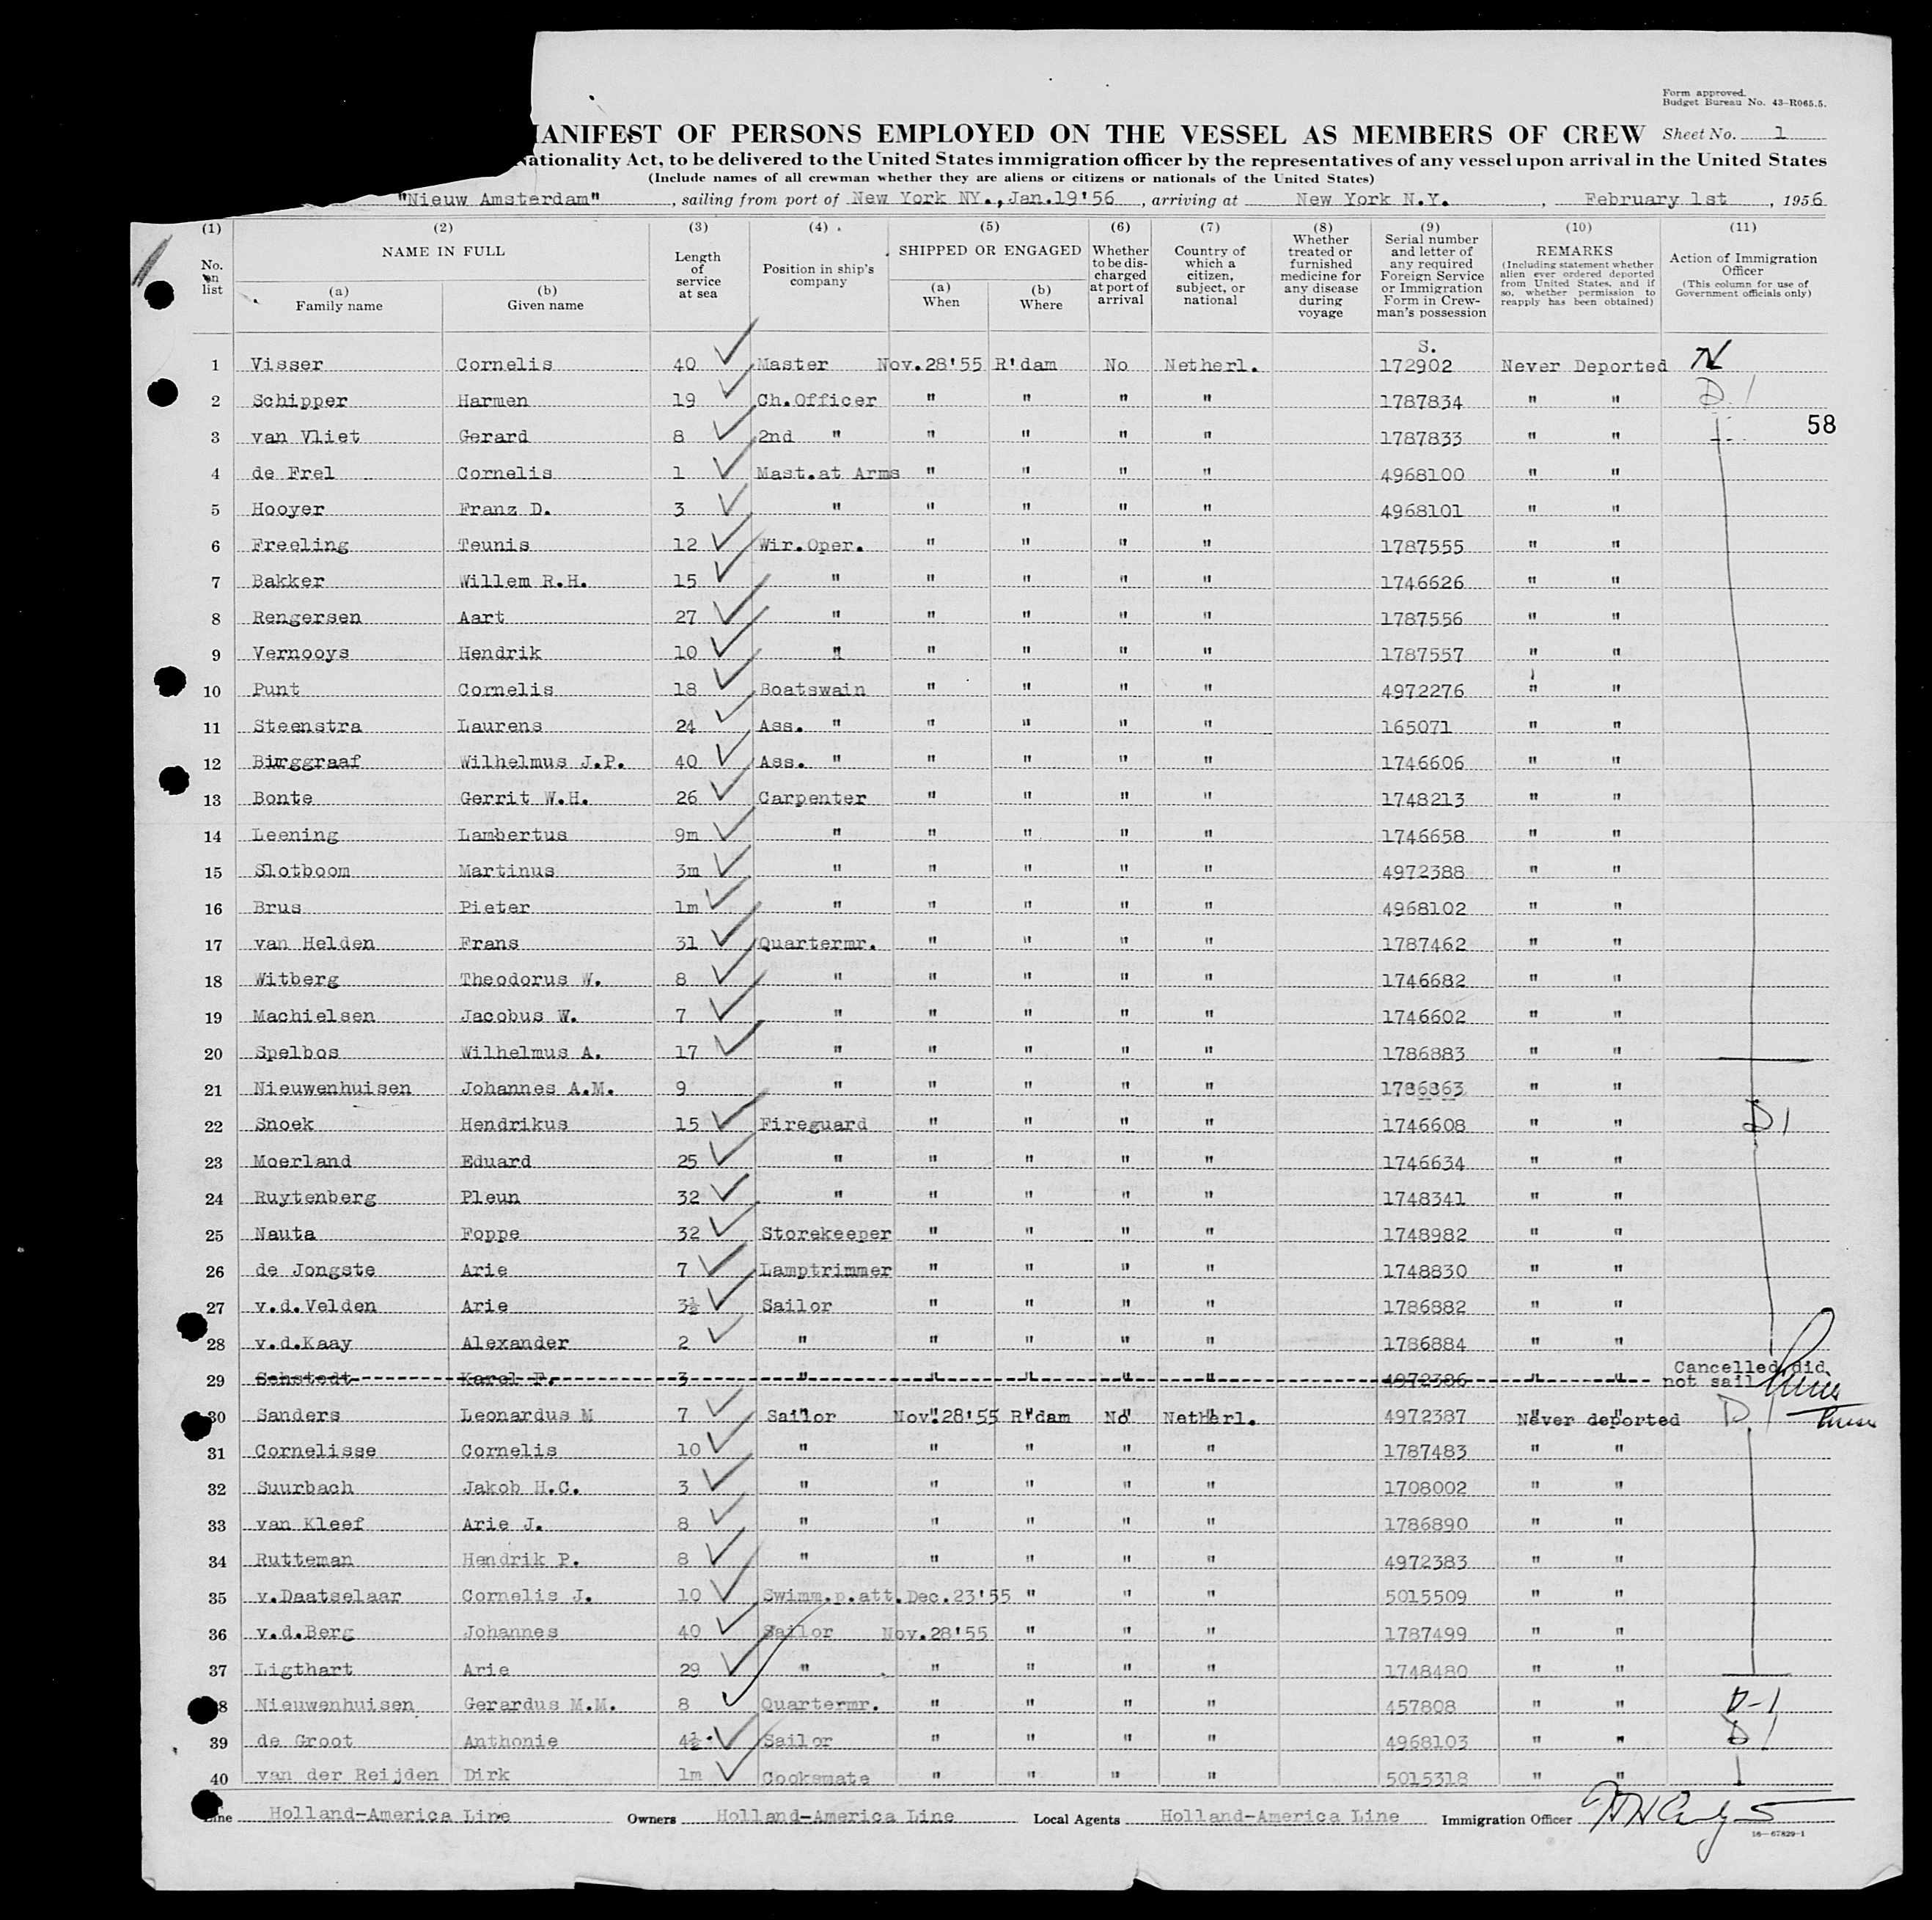 Form approved.
Budget Bureau No. 43-R065.5.
MANIFEST OF PERSONS EMPLOYED ON THE VESSEL AS MEMBERS OF CREW Sheet No. 1
Nationality Act, to be delivered to the United States immigration officer by the representatives of any vessel upon arrival in the United States
(Include names of all crewman whether they are aliens or citizens or nationals of the United States)
"Nieuw Amsterdam", sailing from port of New York NY., Jan.19'56, arriving at New York N.Y., February 1st, 1956
(1) No. on list
(2) NAME IN FULL
(a) Family name
(b) Given name
(3) Length of service at sea
(4) Position in ship's company
(5) SHIPPED OR ENGAGED
(a) When
(b) Where
(6) Whether to be discharged at port of arrival
(7) Country of which a citizen, subject, or national
(8) Whether treated or furnished medicine for any disease during voyage
(9) Serial number and letter of any required Foreign Service or Immigration Form in Crewman's possession
(10) REMARKS (Including statement whether alien ever ordered deported from United States, and if so, whether permission to reapply has been obtained)
(11) Action of Immigration Officer (This column for use of Government officials only)
S.
1 Visser Cornelis 40 Master Nov.28'55 R'dam No Netherl. 172902 Never Deported N
2 Schipper Harmen 19 Ch.Officer " " " " 1787834 " " D 1
58
3 van Vliet Gerard 8 2nd " " " " " 1787833 " "
4 de Frel Cornelis 1 Mast.at Arms " " " " 4968100 " "
5 Hooyer Franz D. 3 " " " " " 4968101 " "
6 Freeling Teunis 12 Wir.Oper. " " " " 1787555 " "
7 Bakker Willem R.H. 15 " " " " " 1746626 " "
8 Rengersen Aart 27 " " " " " 1787556 " "
9 Vernooys Hendrik 10 " " " " " 1787557 " "
10 Punt Cornelis 18 Boatswain " " " " 4972276 " "
11 Steenstra Laurens 24 Ass. " " " " " 165071 " "
12 Burggraaf Wilhelmus J.P. 40 Ass. " " " " " 1746606 " "
13 Bonte Gerrit W.H. 26 Carpenter " " " " 1748213 " "
14 Leening Lambertus 9m " " " " " 1746658 " "
15 Slotboom Martinus 3m " " " " " 4972388 " "
16 Brus Pieter 1m " " " " " 4968102 " "
17 van Helden Frans 31 Quartermr. " " " " 1787462 " "
18 Witberg Theodorus W. 8 " " " " " 1746682 " "
19 Machielsen Jacobus W. 7 " " " " " 1746602 " "
20 Spelbos Wilhelmus A. 17 " " " " " 1786883 " "
21 Nieuwenhuisen Johannes A.M. 9 " " " " " 1786863 " "
22 Snoek Hendrikus 15 Fireguard " " " " 1746608 " " D 1
23 Moerland Eduard 25 " " " " " 1746634 " "
24 Ruytenberg Pleun 32 " " " " " 1748341 " "
25 Nauta Foppe 32 Storekeeper " " " " 1748982 " "
26 de Jongste Arie 7 Lamptrimmer " " " " 1748830 " "
27 v.d.Velden Arie 3½ Sailor " " " " 1786882 " "
28 v.d.Kaay Alexander 2 " " " " " 1786884 " "
29 Schstedt Karel F. 3 " " " " " 4972386 " " Cancelled did not sail
30 Sanders Leonardus M 7 Sailor Nov.28'55 R'dam No Netherl. 4972387 Never deported D 1
31 Cornelisse Cornelis 10 " " " " " 1787483 " "
32 Suurbach Jakob H.C. 3 " " " " " 1708002 " "
33 van Kleef Arie J. 8 " " " " " 1786890 " "
34 Rutteman Hendrik P. 8 " " " " " 4972383 " "
35 v.Daatselaar Cornelis J. 10 Swimm.p.att. Dec.23'55 " " " 5015509 " "
36 v.d.Berg Johannes 40 Sailor Nov.28'55 " " " 1787499 " "
37 Ligthart Arie 29 " " " " " 1748480 " "
38 Nieuwenhuisen Gerardus M.M. 8 Quartermr. " " " " 457808 " " D-1
39 de Groot Anthonie 4½ Sailor " " " " 4968103 " " D 1
40 van der Reijden Dirk 1m Cooksmate " " " " 5015318 " "
Line Holland-America Line Owners Holland-America Line Local Agents Holland-America Line Immigration Officer
16-67829-1